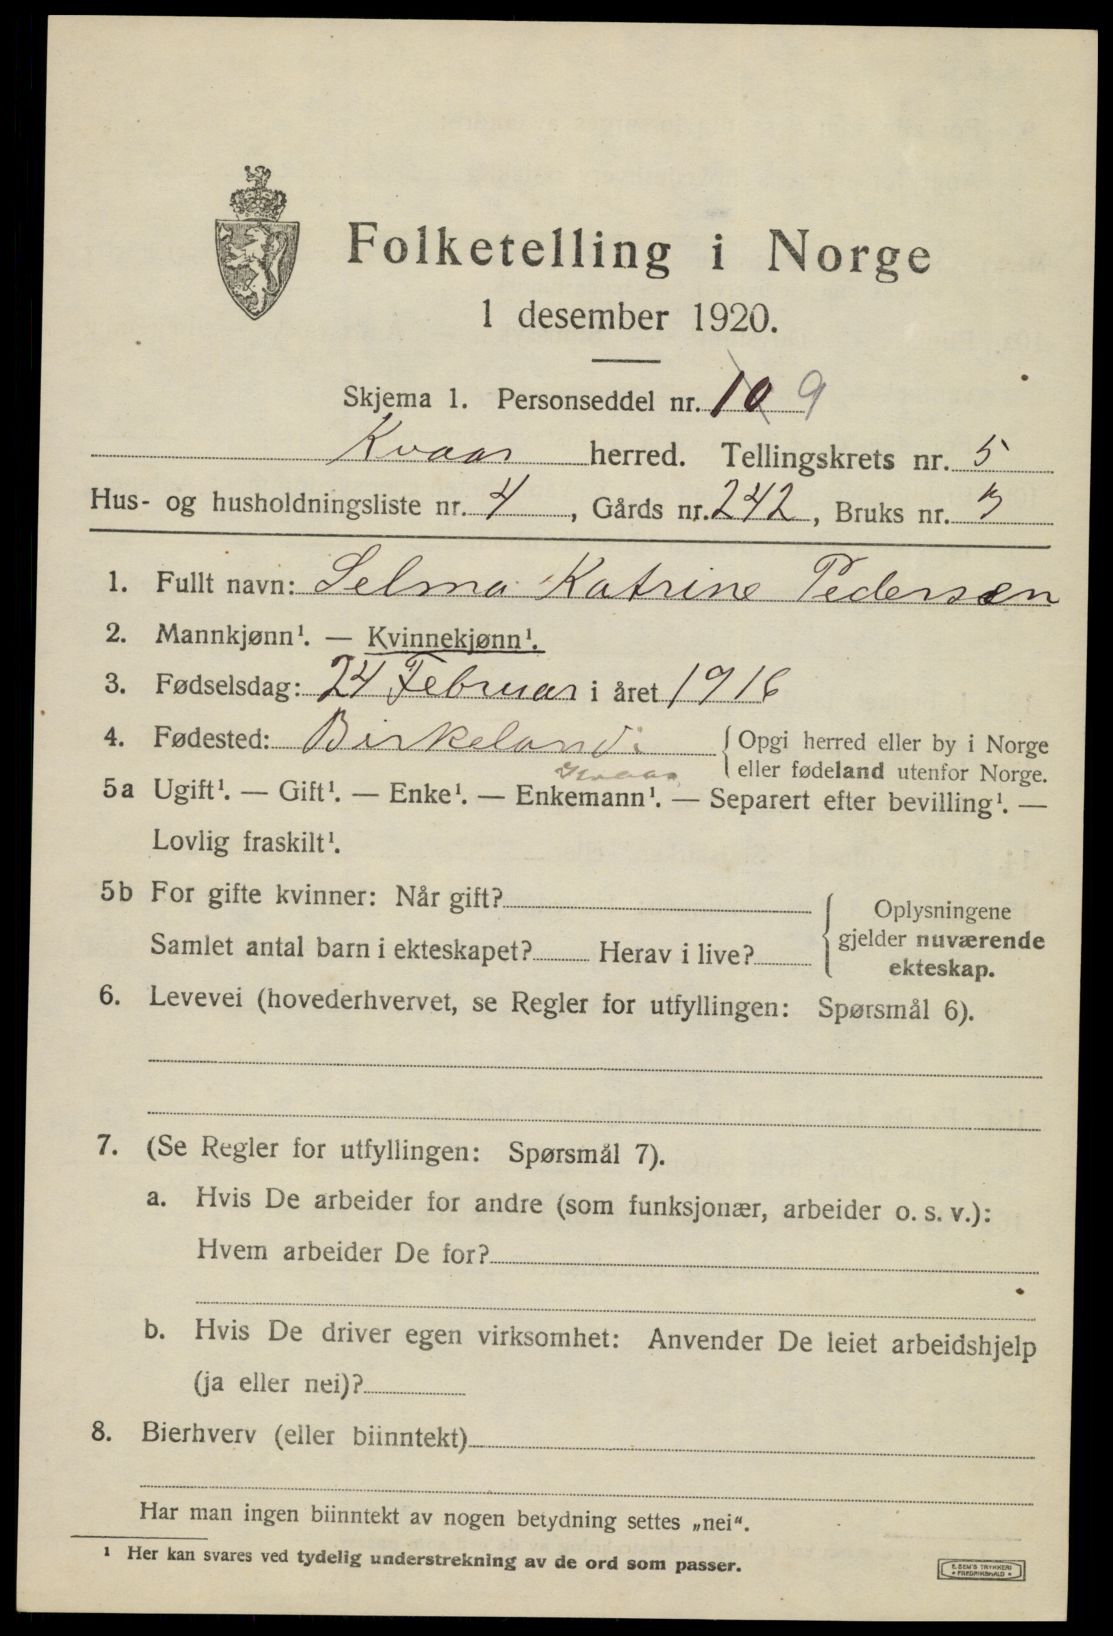 Folketelling i Norge
1 desember 1920.
Skjema 1. Personseddel nr. 10 9
Kvaas herred. Tellingskrets nr. 5
Hus- og husholdningsliste nr. 4, Gårds nr. 242, Bruks nr. 3
1. Fullt navn: Selma Katrine Pedersen
2. Mannkjønn¹. — Kvinnekjønn¹.
3. Fødselsdag: 24 Februar i året 1916
4. Fødested: Birkeland i Kvaas
{ Opgi herred eller by i Norge
eller fødeland utenfor Norge.
5a Ugift¹. — Gift¹. — Enke¹. — Enkemann¹. — Separert efter bevilling¹. —
Lovlig fraskilt¹.
5b For gifte kvinner: Når gift?
Samlet antal barn i ekteskapet? Herav i live?
{ Oplysningene
gjelder nuværende
ekteskap.
6. Levevei (hovederhvervet, se Regler for utfyllingen: Spørsmål 6).
7. (Se Regler for utfyllingen: Spørsmål 7).
a. Hvis De arbeider for andre (som funksjonær, arbeider o. s. v.):
Hvem arbeider De for?
b. Hvis De driver egen virksomhet: Anvender De leiet arbeidshjelp
(ja eller nei)?
8. Bierhverv (eller biinntekt)
Har man ingen biinntekt av nogen betydning settes „nei“.
¹ Her kan svares ved tydelig understrekning av de ord som passer.
E. SEM'S TRYKKERI
• FREDRIKSHALD •